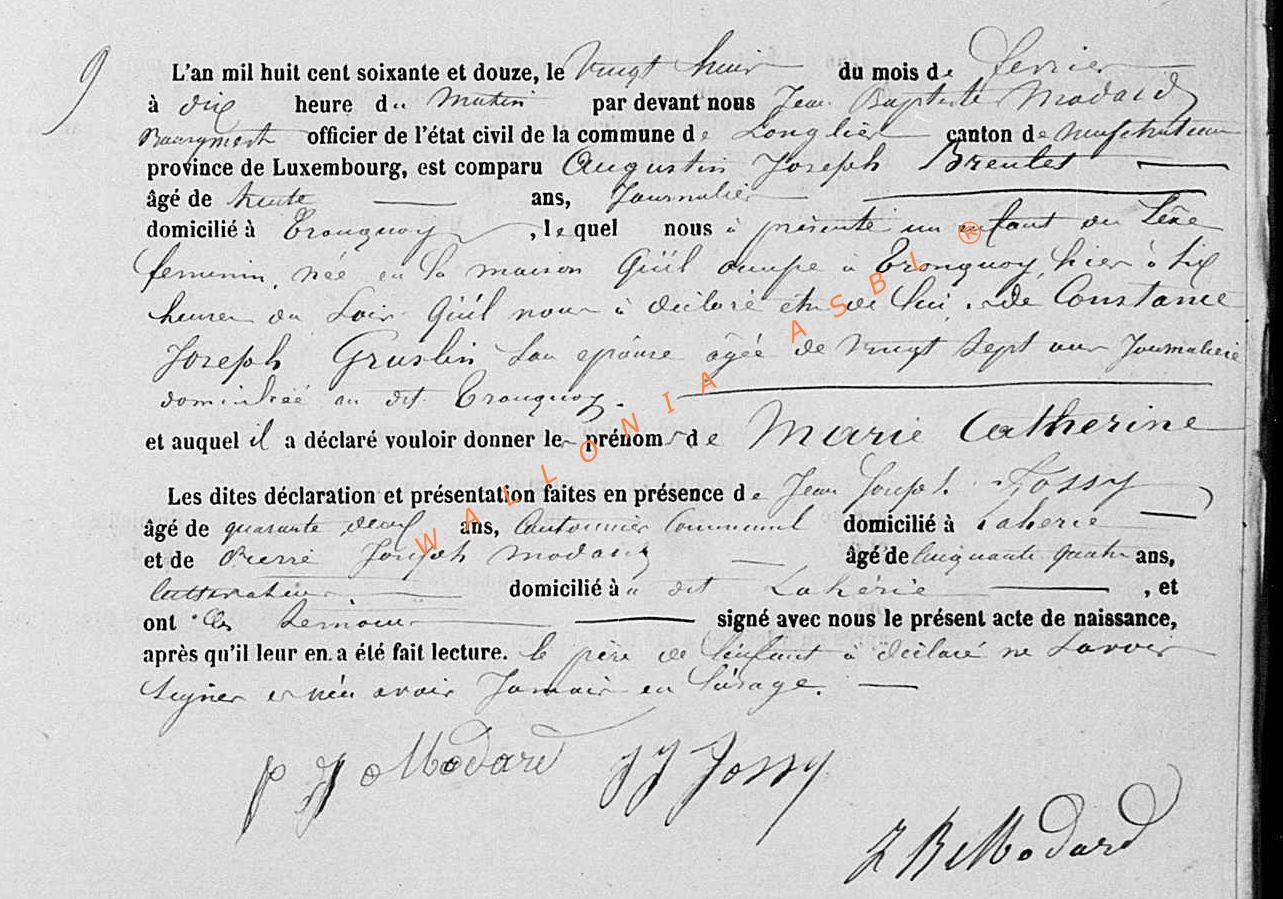 9
L'an mil huit cent soixante et douze, le Vingt huit du mois de fevrier
à dix heure du Matin par devant nous Jean Baptiste Modard
Bourgmest officier de l'état civil de la commune de Longlier canton de Neufchateau
province de Luxembourg, est comparu Augustin Joseph
âgé de trente ans, Journalier
domicilié à Tronquoy, lequel nous à présenté un enfant du Sexe
feminin, née en la maison Qu'il occupe à Tronquoy, hier à six
heures du Soir Qu'il nous à déclaré être de lui, de Constance
Joseph Gruslin Son épouse âgée de vingt Sept ans Journaliere
domiciliée au dit Tronquoy.
et auquel il a déclaré vouloir donner les prénoms de Marie Catherine
Les dites déclaration et présentation faites en présence de Jean Joseph Jossy
âgé de quarante deux ans, Cantonnier Communal domicilié à Laherie
et de Pierre Joseph Modard âgé de Cinquante quatre ans,
Cultivateur domicilié à au dit Lahérie, et
ont les temoins signé avec nous le présent acte de naissance,
après qu'il leur en a été fait lecture. le père de l'enfant à déclaré ne Savoir
Signer et n'en avoir Jamais eu l'usage.
p J Modard JJ Jossy
J B Modard
WALLONIA ASBL ®